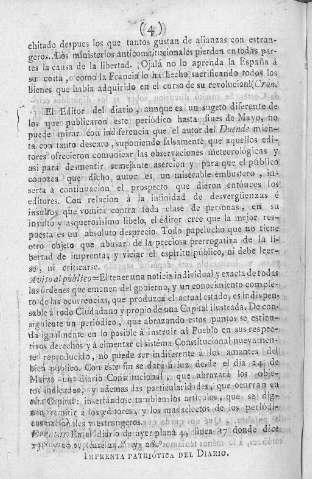 (4)
chitado despues los que tantos gustan de alianzas con estran-
geros. Los ministerios anticonstitucionales pierden en todas par-
tes la causa de la libertad. ¡Ojalá no lo aprenda la España á
su costa, como la Francia lo ha hecho sacrificando todos los
bienes que habia adquirido en el curso de su revolucion! (Cron.
El Editor del diario, aunque es un sugeto diferente de
los que publicaron este periodico hasta fines de Mayo, no
puede mirar con indiferencia que el autor del Duende mien-
ta con tanto descaro, suponiendo falsamente que aquellos edi-
tores ofrecieron comunicar las observaciones meteorologicas y
asi para desmentir semejante asercion y para que el público
conozca que dicho autor es un miserable embustero, in-
serta á continuacion el prospecto que dieron entonces los
editores. Con relacion á la infinidad de desvergüenzas é
insultos que vomita contra toda clase de personas, en su
insulto y asquerosisimo libelo, el editor cree que la mejor res-
puesta es un absoluto desprecio. Todo papelucho que no tiene
otro objeto que abusar de la preciosa prerrogativa de la li-
bertad de imprenta, y viciar el espiritu público, ni debe leer-
se, ni criticarse.
Aviso al público = El tener una noticia individual y exacta de todas
las órdenes que emanen del gobierno, y un conocimiento comple-
to de las ocurrencias, que produzca el actual estado, es indispen-
sable á todo Ciudadano y propio de una Capital ilustrada. De con-
siguiente un periodico, que abrazando estos puntos se estien-
da igualmente en lo posible á instruir al Pueblo en sus respec-
tivos derechos y á cimentar el sistema Constitucional nuevamen-
te reproducido, no puede ser indiferente á los amantes del
bien público. Con este fin se dará á luz desde el dia 24 de
Marzo un diario Constitucional, que abrazará los obje-
tos indicados, y ademas las particularidades, que ocurran en
esta Capital: insertándose tambien los articulos, que se dig-
nen remitir á los editores, y los mas selectos de los periodi-
cos nacionales y estrangeros.
En el diario de ayer plana 4, linea 27 donde dice
IMPRENTA PATRIÓTICA DEL DIARIO.